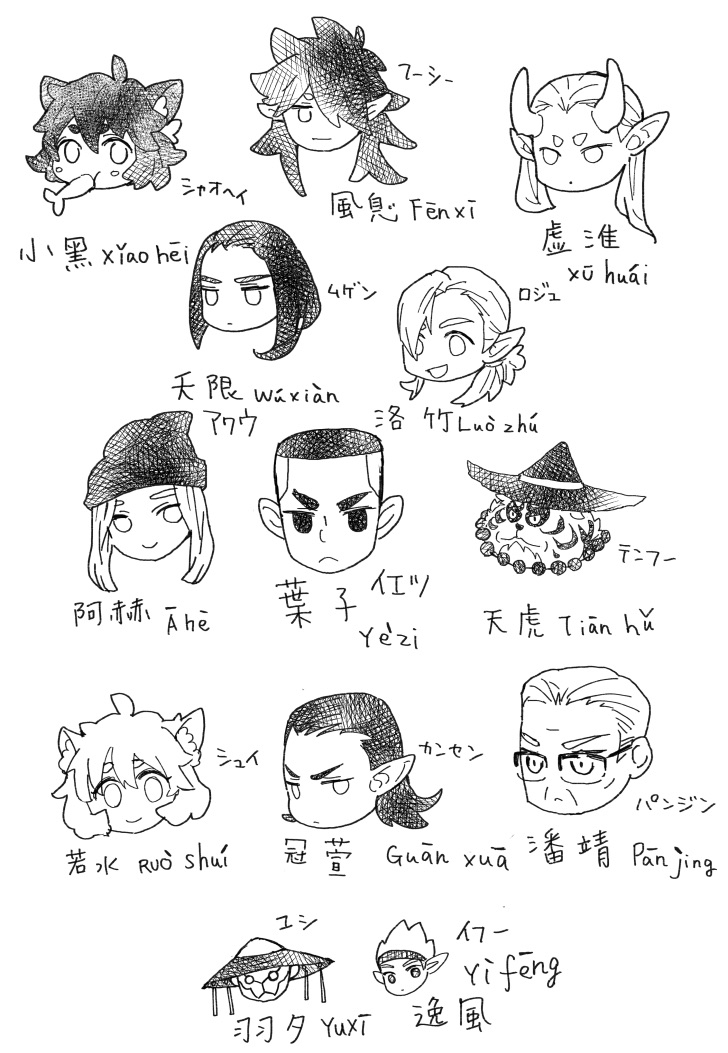 シャオヘイ
小黑 xiǎo hēi
フーシー
風息 Fēn xī
虚淮
xū huái
ムゲン
无限 wúxiàn
ロジュ
洛竹 Luò zhú
アクウ
阿赫 Ā hè
イエツ
葉子
Yè zi
テンフー
天虎 Tiān hǔ
シュイ
若水 Ruò shuǐ
カンセン
冠萱 Guān xuā
パンジン
潘靖 Pān jìng
ユシ
羽夕 Yuxī
イフー
Yì fēng
逸風